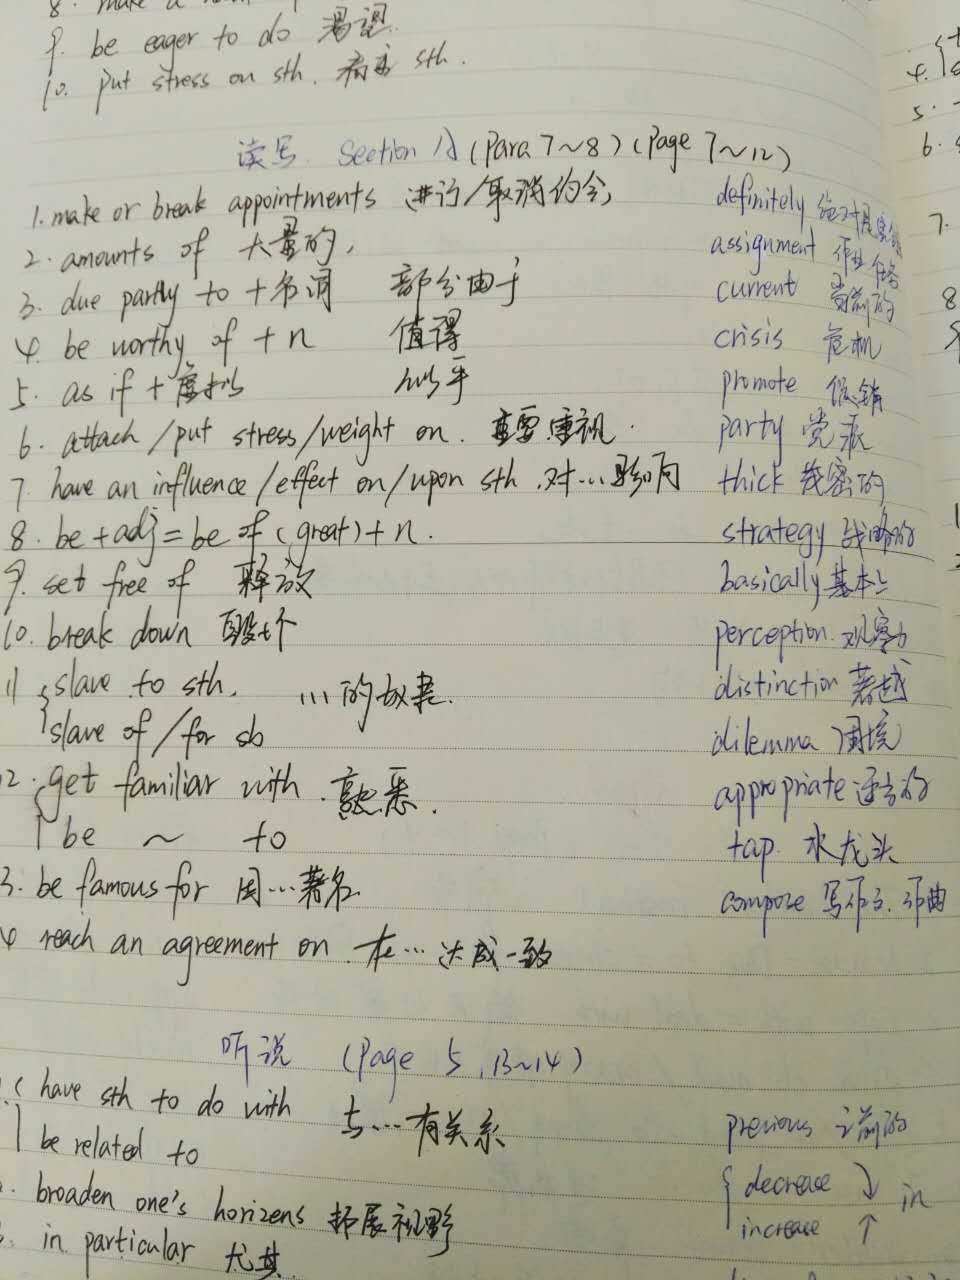 8. make a
9. be eager to do 渴望
10. put stress on sth. 着重 sth.
读写 Section A (Para 7~8) (Page 7~12)
1. make or break appointments 进行/取消约会 definitely 绝对是
2. amounts of 大量的, assignment 作业 任务
3. due partly to + 名词 部分由于 current 当前的
4. be worthy of + n 值得 crisis 危机
5. as if + 虚拟 似乎 promote 促销
6. attach /put stress/weight on. 重要重视. party 党派
7. have an influence/effect on/upon sth. 对…影响 thick 浓密的
8. be + adj = be of (great) + n. strategy 战略的
9. set free of 释放 basically 基本上
10. break down 毁坏 perception. 观察力
11 slave to sth. …的奴隶. distinction 著越
slave of/for sb dilemma 困境
2. get familiar with. 熟悉. appropriate 适当的
be ~ to tap. 水龙头
3. be famous for 因…著名 compose 写作文. 作曲
4 reach an agreement on. 在…达成一致
听说 (Page 5, 13~14)
have sth to do with 与…有关系 previous 之前的
be related to decrease ↓ in
2. broaden one's horizens 拓展视野 increase ↑
3. in particular 尤其